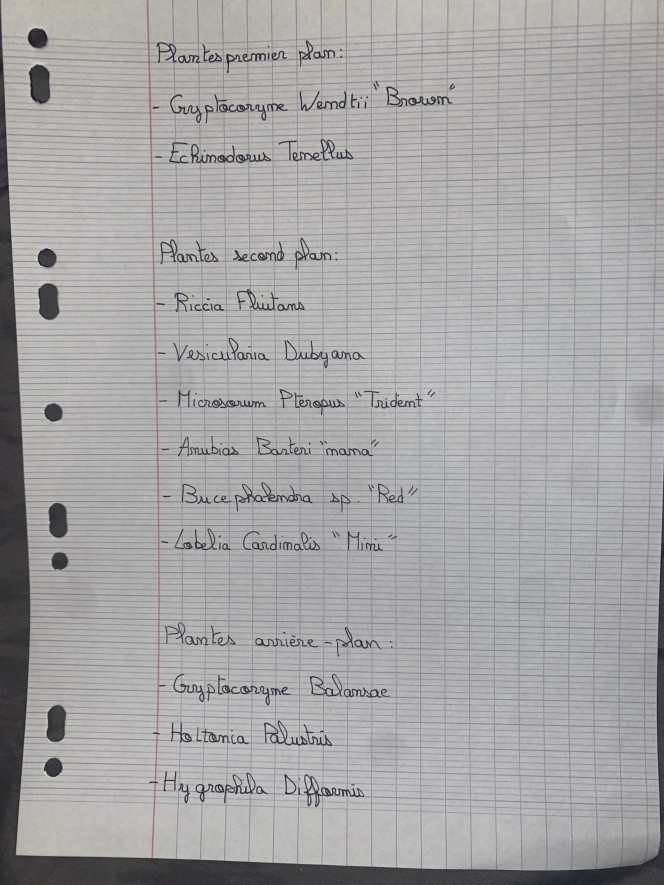 Plantes premier plan:
- Cryptocoryne Wendtii "Brown"
- Echinodorus Tenellus
Plantes second plan:
- Riccia Fluitans
- Vesicularia Dubyana
- Microsorum Pteropus "Trident"
- Anubias Barteri "nana"
- Bucephalendra sp. "Red"
- Lobelia Cardinalis "Mini"
Plantes arrière-plan:
- Cryptocoryne Balansae
- Hottonia Palustris
- Hygrophila Difformis